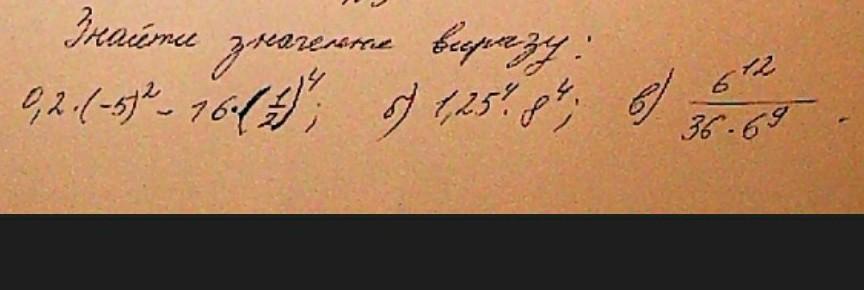 Знайти значення виразу:
0,2·(-5)² - 16·(1/2)⁴; б) 1,25⁴·8⁴; в) 6¹²/(36·6⁹).